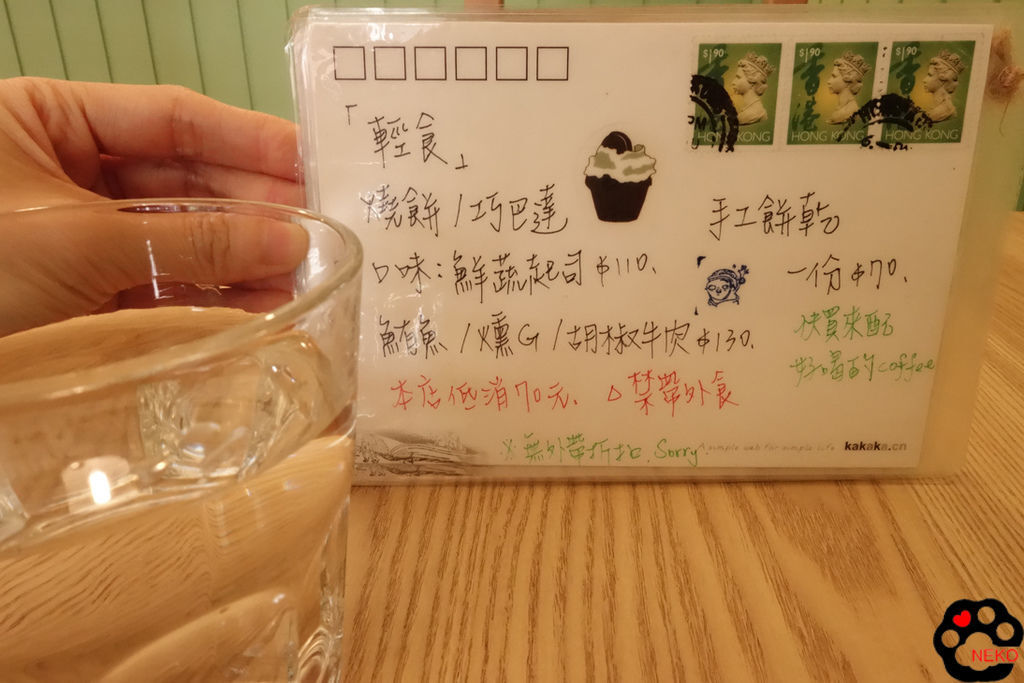 $1.90 $1.90 $1.90
香港 香港 香港
HONG KONG HONG KONG HONG KONG
「輕食」
燒餅/巧巴達
口味:鮮蔬起司$110.
鮪魚/燻G/胡椒牛肉$130.
手工餅乾
一份$70.
快買來配
好喝的coffee
本店低消70元、△禁帶外食
※無外帶折扣.Sorry
A simple web for simple life kakaka.cn
NEKO